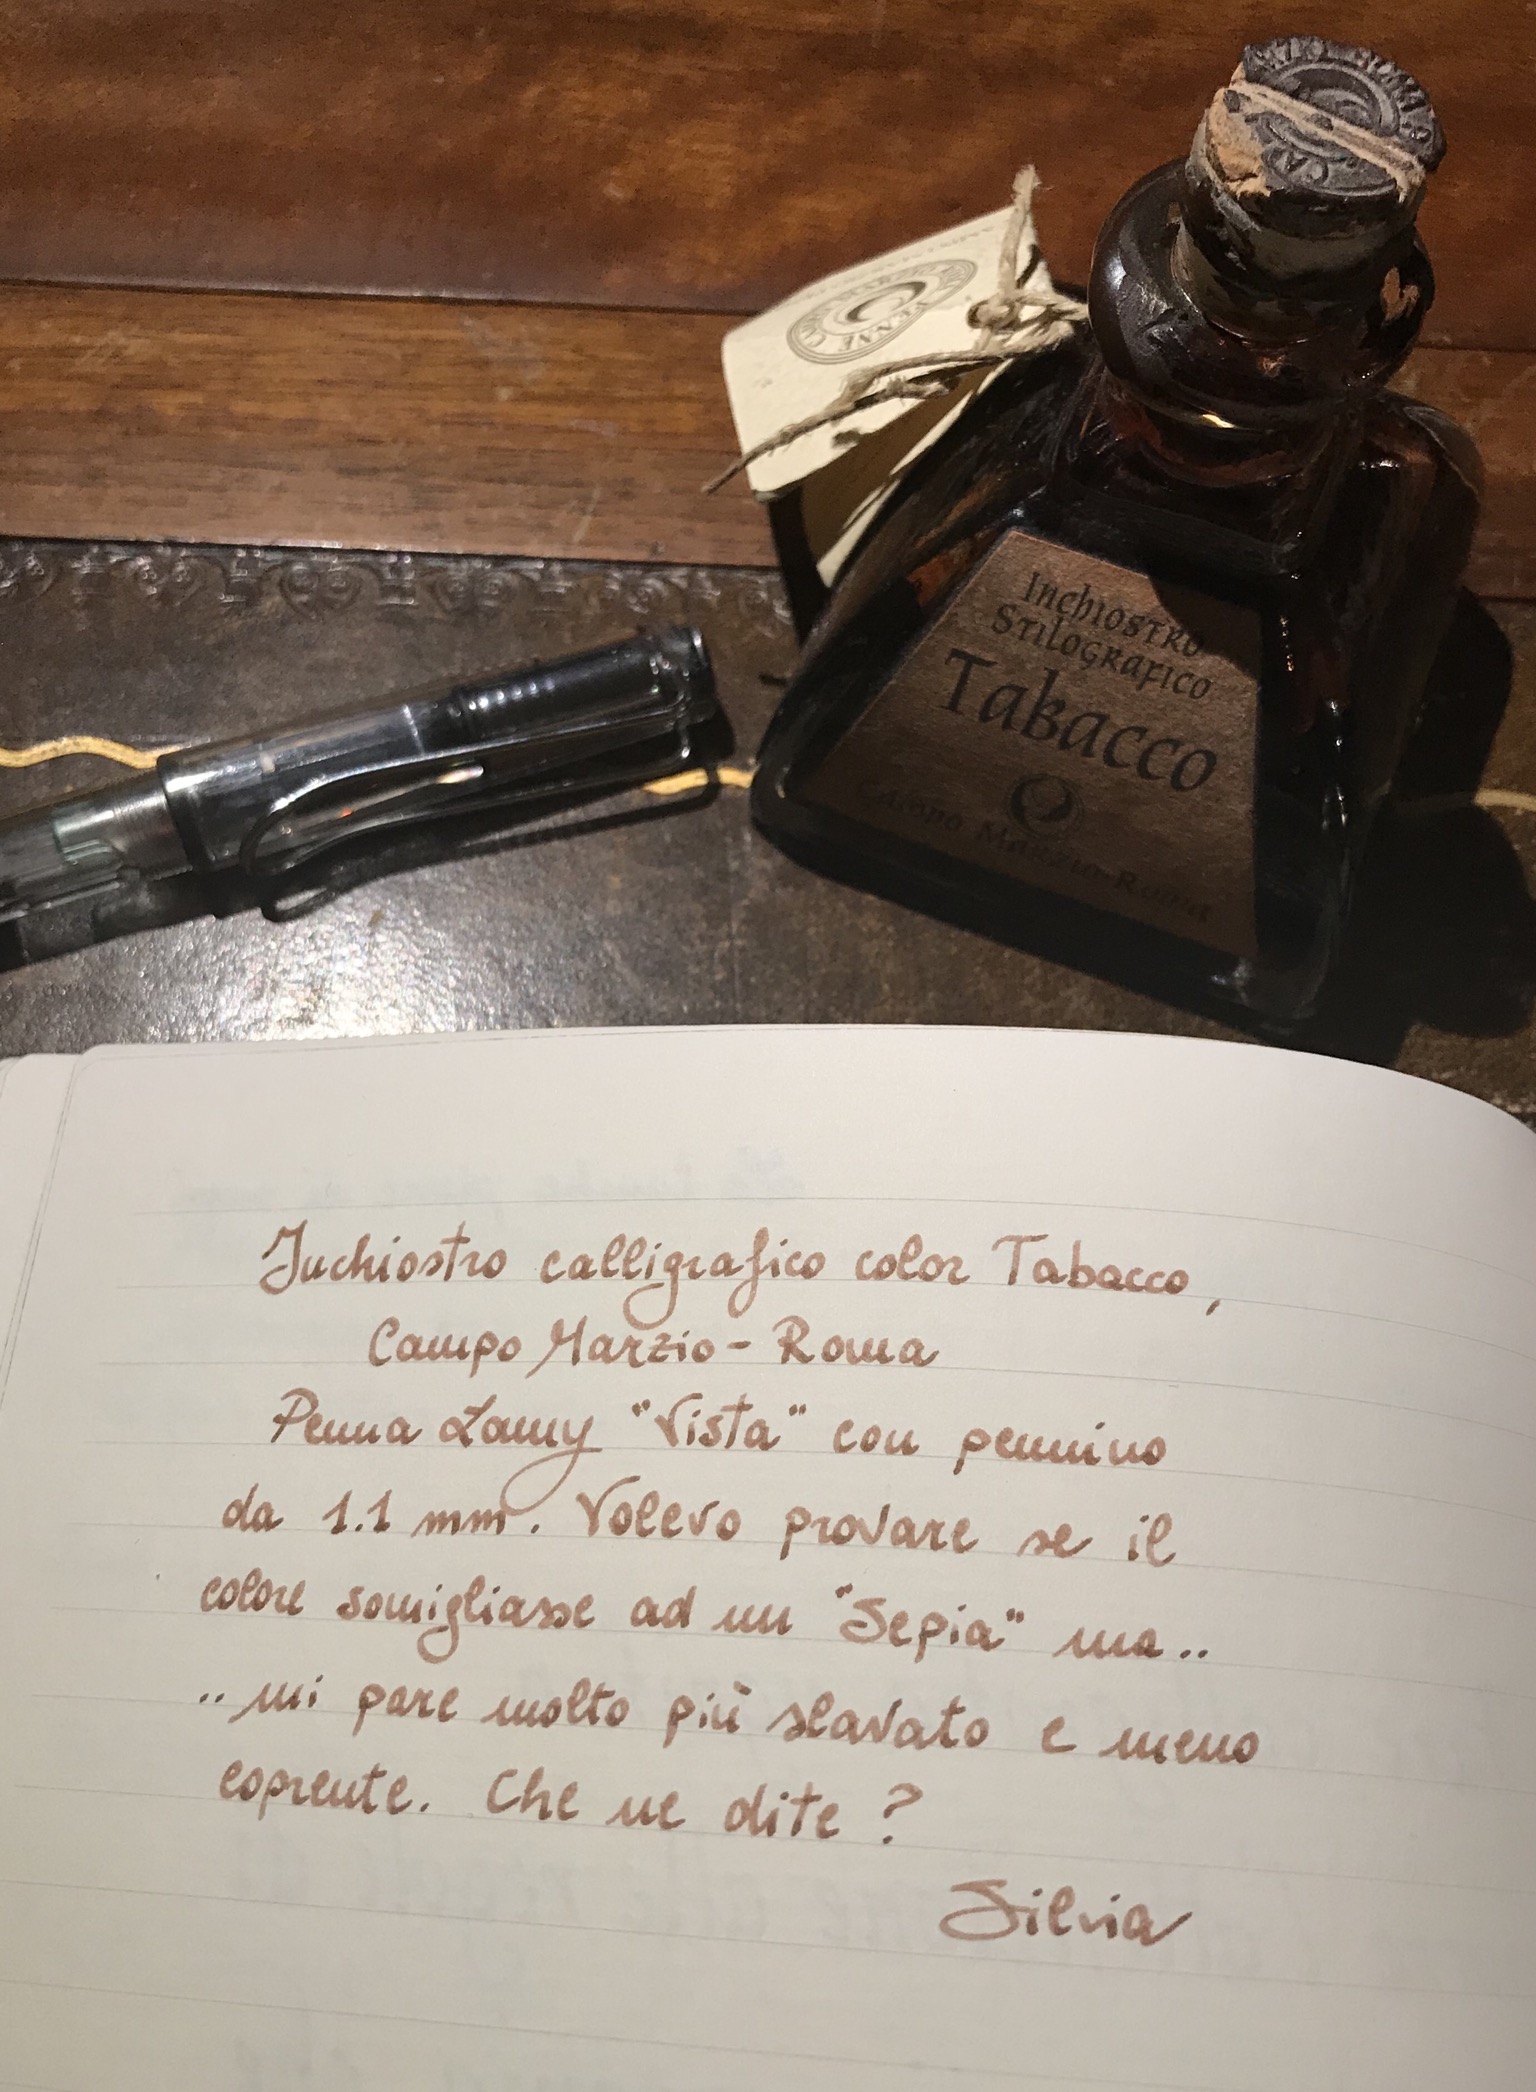 PENNE
Inchiostro
Stilografico
Tabacco
Campo Marzio-Roma
Inchiostro calligrafico color Tabacco,
Campo Marzio - Roma
Penna Lamy "Vista" con pennino
da 1.1 mm. Volevo provare se il
colore somigliasse ad un "Sepia" ma..
..mi pare molto più slavato e meno
coprente. Che ne dite ?
Silvia